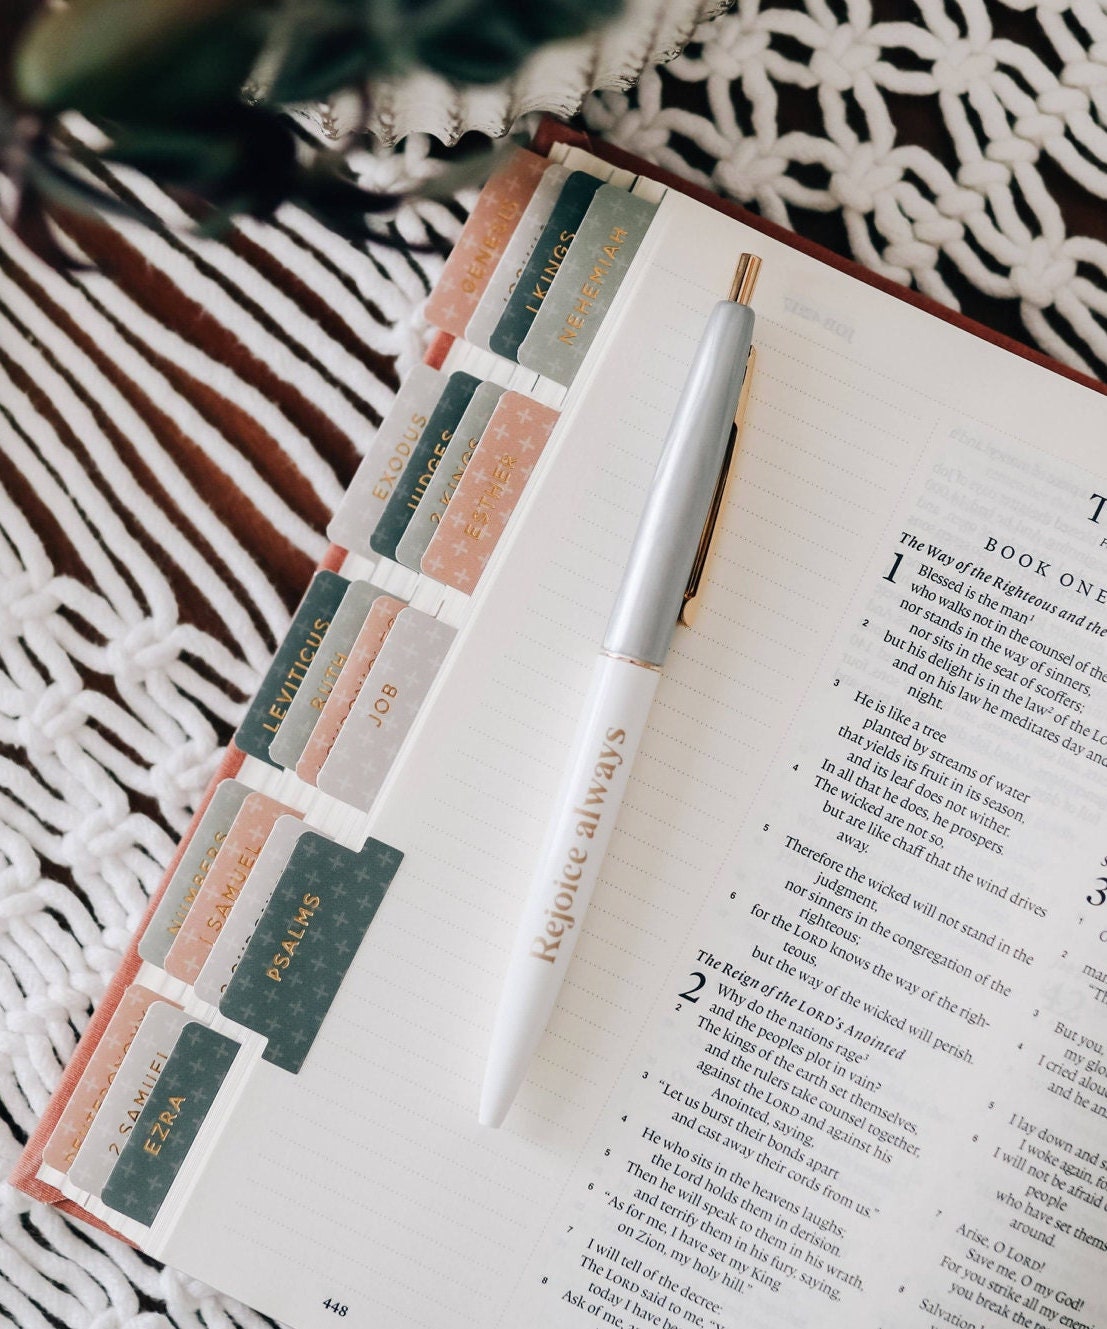 GENESIS
1 KINGS
NEHEMIAH
EXODUS
JUDGES
2 KINGS
ESTHER
LEVITICUS
RUTH
JOB
NUMBERS
1 SAMUEL
PSALMS
2 SAMUEL
EZRA
Rejoice always
BOOK ONE
The Way of the Righteous and the
1 Blessed is the man¹
who walks not in the counsel of the
nor stands in the way of sinners,
nor sits in the seat of scoffers;
2 but his delight is in the law² of the
and on his law he meditates day and
night.
3 He is like a tree
planted by streams of water
that yields its fruit in its season,
and its leaf does not wither.
In all that he does, he prospers.
4 The wicked are not so,
but are like chaff that the wind drives
away.
5 Therefore the wicked will not stand in the
judgment,
nor sinners in the congregation of the
righteous;
6 for the LORD knows the way of the righ-
teous,
but the way of the wicked will perish.
The Reign of the LORD's Anointed
2 Why do the nations rage³
and the peoples plot in vain?
2 The kings of the earth set themselves,
and the rulers take counsel together,
against the LORD and against his
Anointed, saying,
3 “Let us burst their bonds apart
and cast away their cords from us.”
4 He who sits in the heavens laughs;
the Lord holds them in derision.
5 Then he will speak to them in his wrath,
and terrify them in his fury, saying,
6 “As for me, I have set my King
on Zion, my holy hill.”
7 I will tell of the decree:
The LORD said to me,
today I have
8 Ask of me,
3
2
man
“Th
3 But you,
my glo
4 I cried alou
and he an
5 I lay down and s
I woke again, fo
6 I will not be afraid
people
who have set thems
around.
7 Arise, O LORD!
Save me, O my God!
For you strike all my enem
you break the
8 Salvation
448